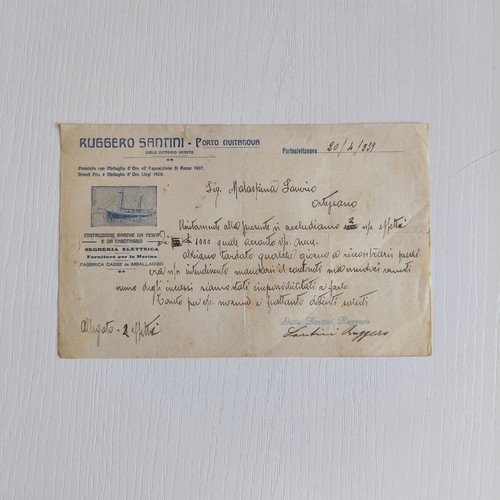 RUGGERO SANTINI - PORTO CIVITANOVA
VIALE VITTORIO VENETO
Premiato con Medaglia d'Oro all'Esposizione di Roma 1927.
Grand Prix e Medaglia d'Oro Liegi 1928.
Portocivitanova, 20/4/939
Sig. Malaspina Saverio
Ortezzano
COSTRUZIONE BARCHE DA PESCA
E DA CABOTAGGIO
SEGHERIA ELETTRICA
Forniture per la Marina
FABBRICA CASSE da IMBALLAGGIO
Unitamente alla presente vi accludiamo 2 n/s effetti
di 1000 quale acconto
Abbiamo tardato qualche giorno a riscontrarvi perchè
era n/s intendimento mandarvi il contante ma essendoci venuti
meno degli incassi siamo stati impossibilitati a farlo.
Tanto per vs. norma e frattanto distinti saluti
Allegato - 2 effetti
Ditta Santini Ruggero
Santini Ruggero